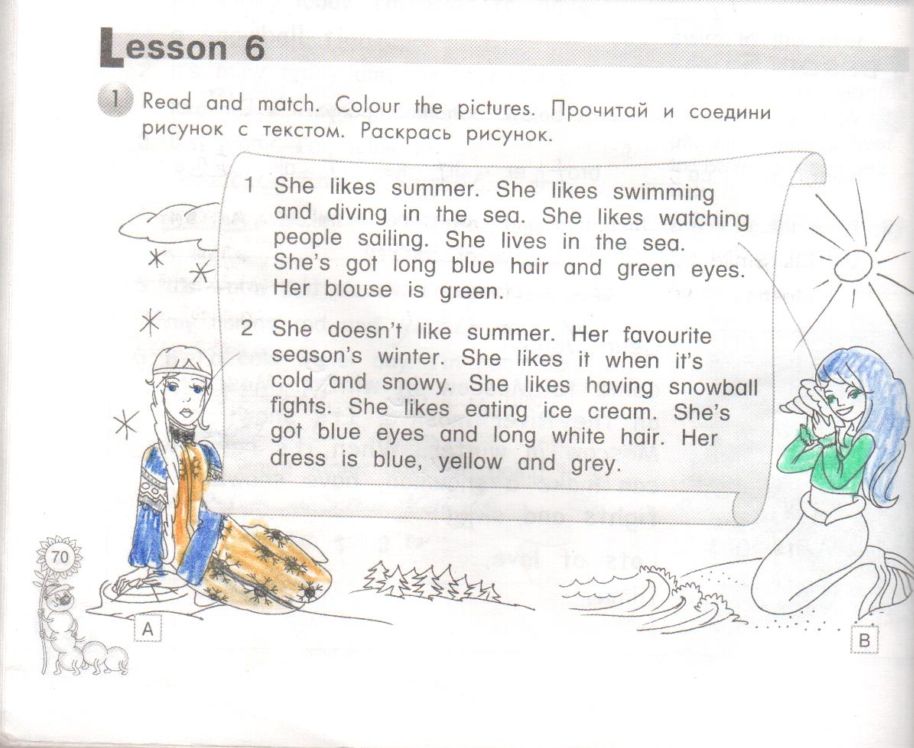 Lesson 6
1 Read and match. Colour the pictures. Прочитай и соедини
рисунок с текстом. Раскрась рисунок.
1 She likes summer. She likes swimming
and diving in the sea. She likes watching
people sailing. She lives in the sea.
She's got long blue hair and green eyes.
Her blouse is green.
2 She doesn't like summer. Her favourite
season's winter. She likes it when it's
cold and snowy. She likes having snowball
fights. She likes eating ice cream. She's
got blue eyes and long white hair. Her
dress is blue, yellow and grey.
70
A
B